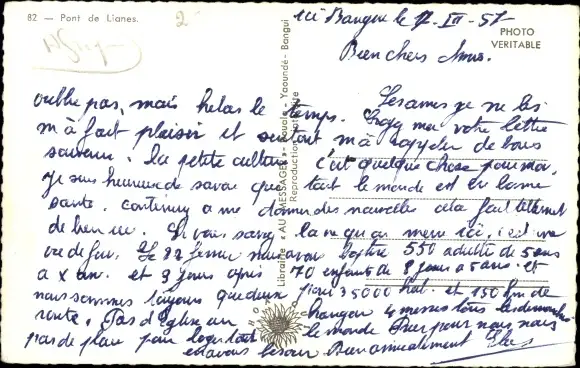 82 — Pont de Lianes.
2
ici Bangui le 17-III-57
PHOTO
VERITABLE
Bien chers Amis.
Les ames je ne les
oublie pas, mais helas le temps.
votre lettre
m'a fait plaisir et surtout m'a rappeler de bons
souvenir. La petite
c'est quelque chose pour moi,
je suis heureuse de savoir que tout le monde est en bonne
santé. continuez a me donner des nouvelles cela fait tellement
de bien
Si vous saviez la vie qu'on mene ici, c'est une
vie de fou. Le 22 fevrier nous avons baptisé 550 adulte de 5 ans
a X an. et 3 jours apres 70 enfants de 8 jours a 5 ans. et
nous sommes toujours que deux pour 35000 hab. et 150 km de
route. Pas d'Eglise un hangar 4 messes tous les dimanches
pas de place pour loger tout le monde Prier pour nous nous
en avons besoin Bien amicalement
Librairie « AU MESSAGER » - Douala - Yaoundé - Bangui
Reproduction interdite